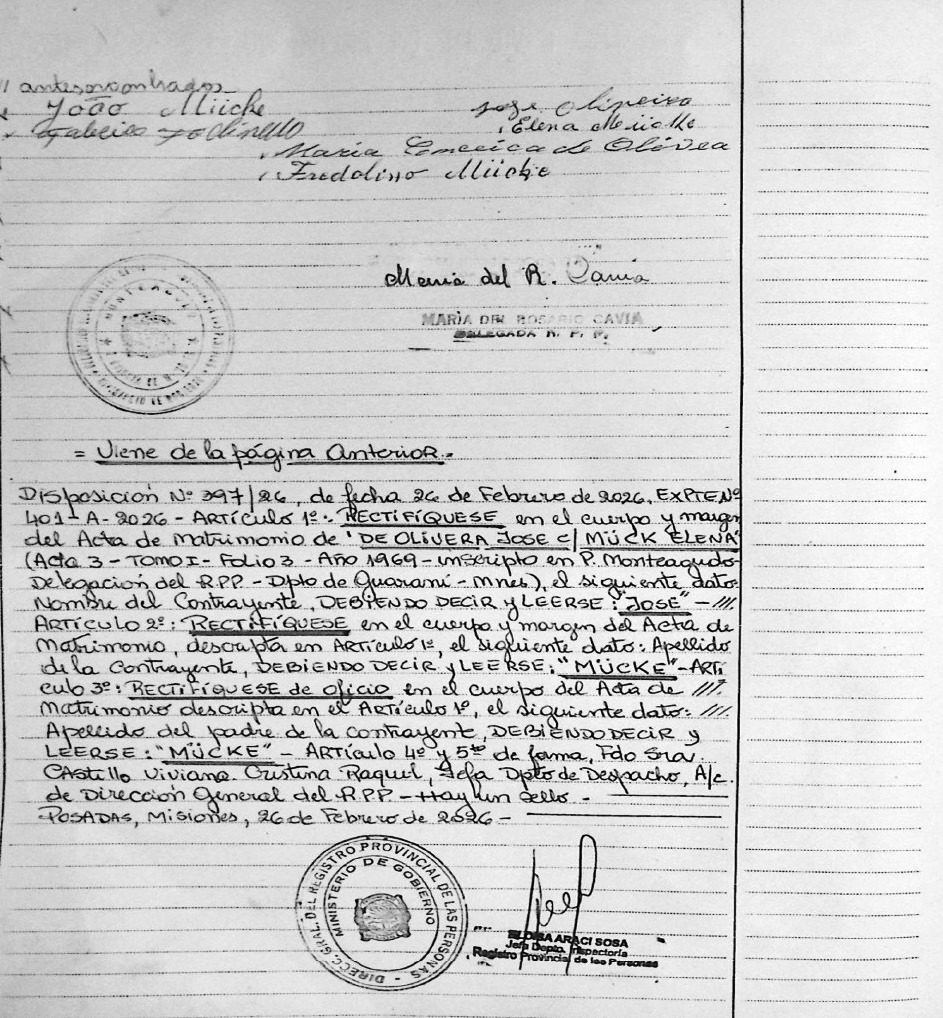 // antes nombrados
João Mücke
Jose Olipeira
Elena Mücke
Maria Conceica de Olivea
Fredolino Mücke
Maria del R. Cavia
MARIA DEL ROSARIO CAVIA
DELEGADA R. P. P.
= Viene de la página Anterior.-
Disposición Nº 397/26, de fecha 26 de Febrero de 2026. EXPTE Nº
401-A-2026 - ARTÍCULO 1º: RECTIFÍQUESE en el cuerpo y margen
del Acta de Matrimonio de "DE OLIVERA JOSE C/ MÜCK ELENA"
(Acta 3 - TOMO I - Folio 3 - Año 1969 - inscripto en P. Monteagudo-
Delegación del R.P.P - Dpto de Guaraní - Mnes), el siguiente dato:
Nombre del Contrayente, DEBIENDO DECIR y LEERSE: "JOSÉ" - ///.
ARTÍCULO 2º: RECTIFÍQUESE en el cuerpo y margen del Acta de
Matrimonio, descripta en Artículo 1º, el siguiente dato: Apellido
de la Contrayente, DEBIENDO DECIR y LEERSE: "MÜCKE" - ARTÍ
culo 3º: RECTIFÍQUESE de oficio en el cuerpo del Acta de ///.
Matrimonio descripta en el Artículo 1º, el siguiente dato: ///.
Apellido del padre de la contrayente, DEBIENDO DECIR y
LEERSE: "MÜCKE" - ARTículo 4º y 5to de forma, Fdo Sra.
Castillo Viviana Cristina Raquel, Jefa Dpto de Despacho, A/c.
de Dirección General del R.P.P - Hay un sello. -
POSADAS, Misiones, 26 de Febrero de 2026 -
DIRECC. GRAL. DEL REGISTRO PROVINCIAL DE LAS PERSONAS -
MINISTERIO DE GOBIERNO
ELOISA ARACI SOSA
Jefa Depto. Inspectoría
Registro Provincial de las Personas